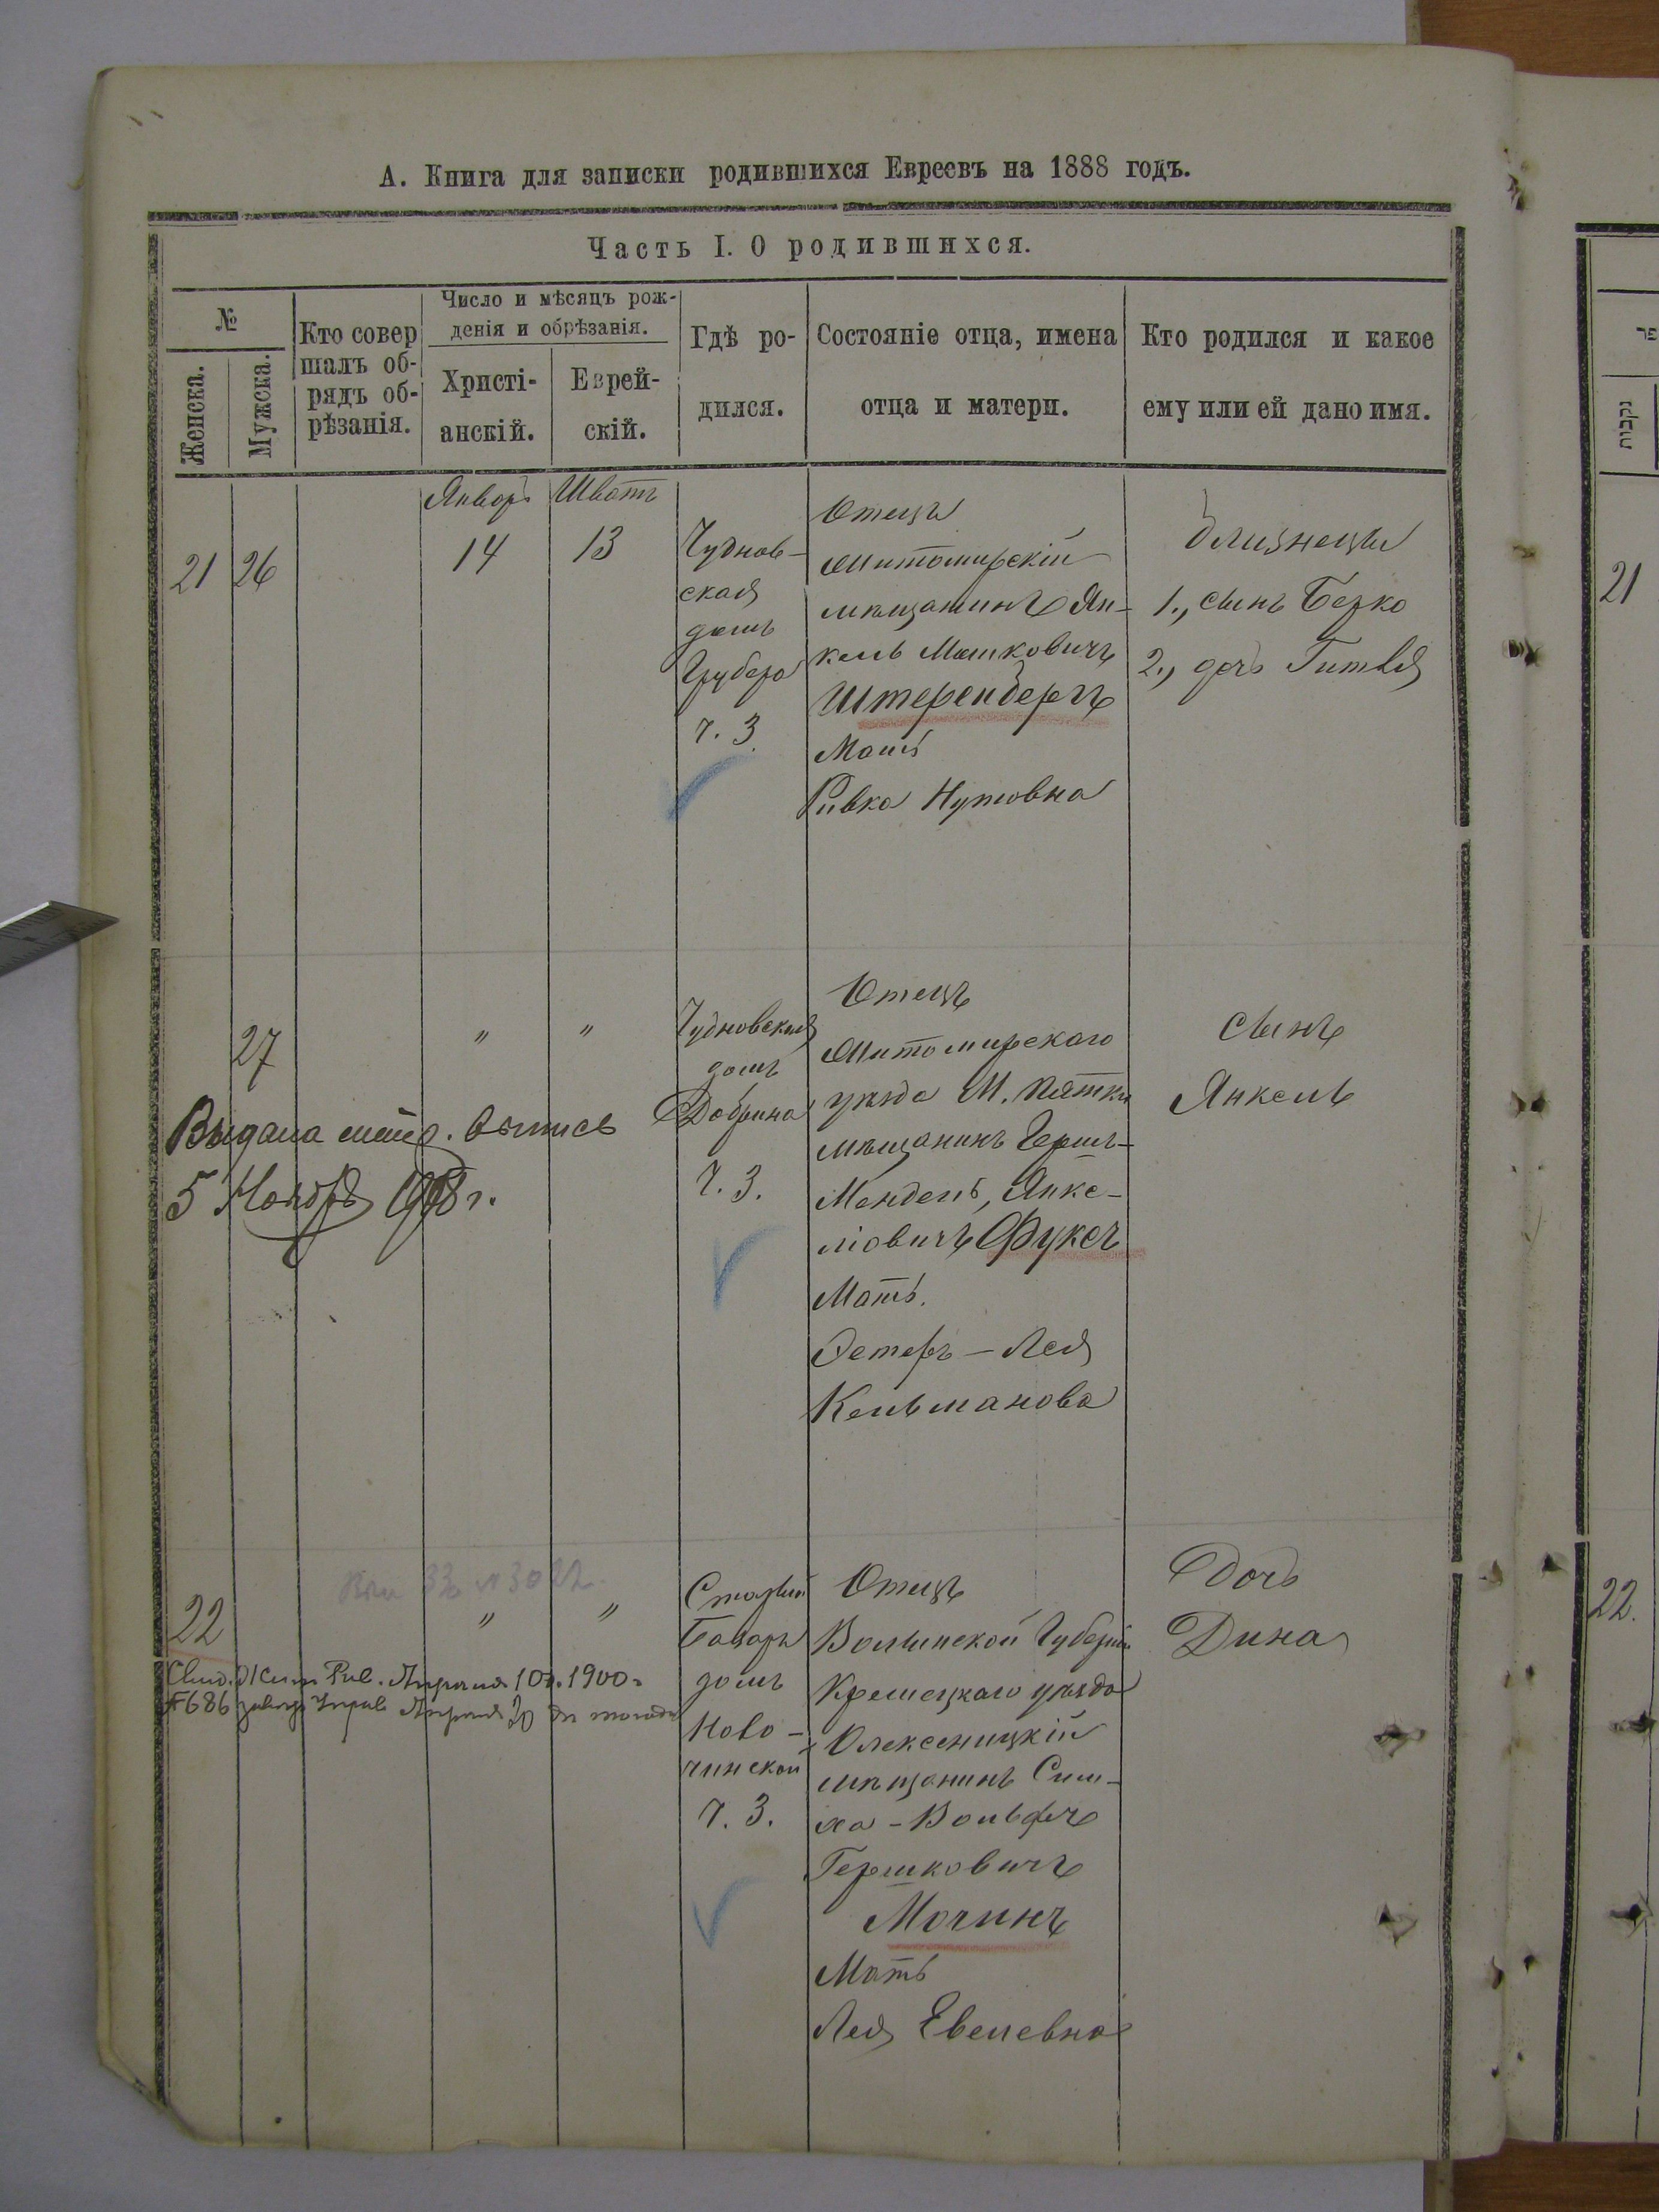 А. Книга для записки родившихся Евреевъ на 1888 годъ.
Часть I. О родившихся.
№
Женска.
Мужска.
Кто совер
шалъ об-
рядъ об-
рѣзанія.
Число и мѣсяцъ рож-
денія и обрѣзанія.
Христі-
анскій.
Еврей-
скій.
Гдѣ ро-
дился.
Состояніе отца, имена
отца и матери.
Кто родился и какое
ему или ей дано имя.
21
26
Январь
14
Шватъ
13
Чуднов-
ская
домъ
Грубера
ч. 3.
Отецъ
Житомирскій
мѣщанинъ Ян-
кель Мошковичъ
Штеренбергъ
Мать
Ривка Нутовна
близнецы
1., сынъ Берко
2., дочь Гитля
27
"
"
Чудновская
домъ
Добрина
ч. 3.
Отецъ
Житомирскаго
уѣзда М. Пятки
мѣщанинъ Герш-
Мендель, Янке-
ліовичъ Фуксъ
Мать.
Эстеръ – Лея
Кельманова
сынъ
Янкель
Выдана выпись
5 Ноября 1908 г.
22
"
"
Старый
Базаръ
домъ
Ново-
чинской
ч. 3.
Отецъ
Волынской Губерніи
Кремецкаго уѣзда
Олексеницкій
мѣщанинъ Сим-
ха – Вольфъ
Гершковичъ
Мочинъ
Мать
Лея Евелевна
Дочь
Дина
1900
686
21
22.
נקבות